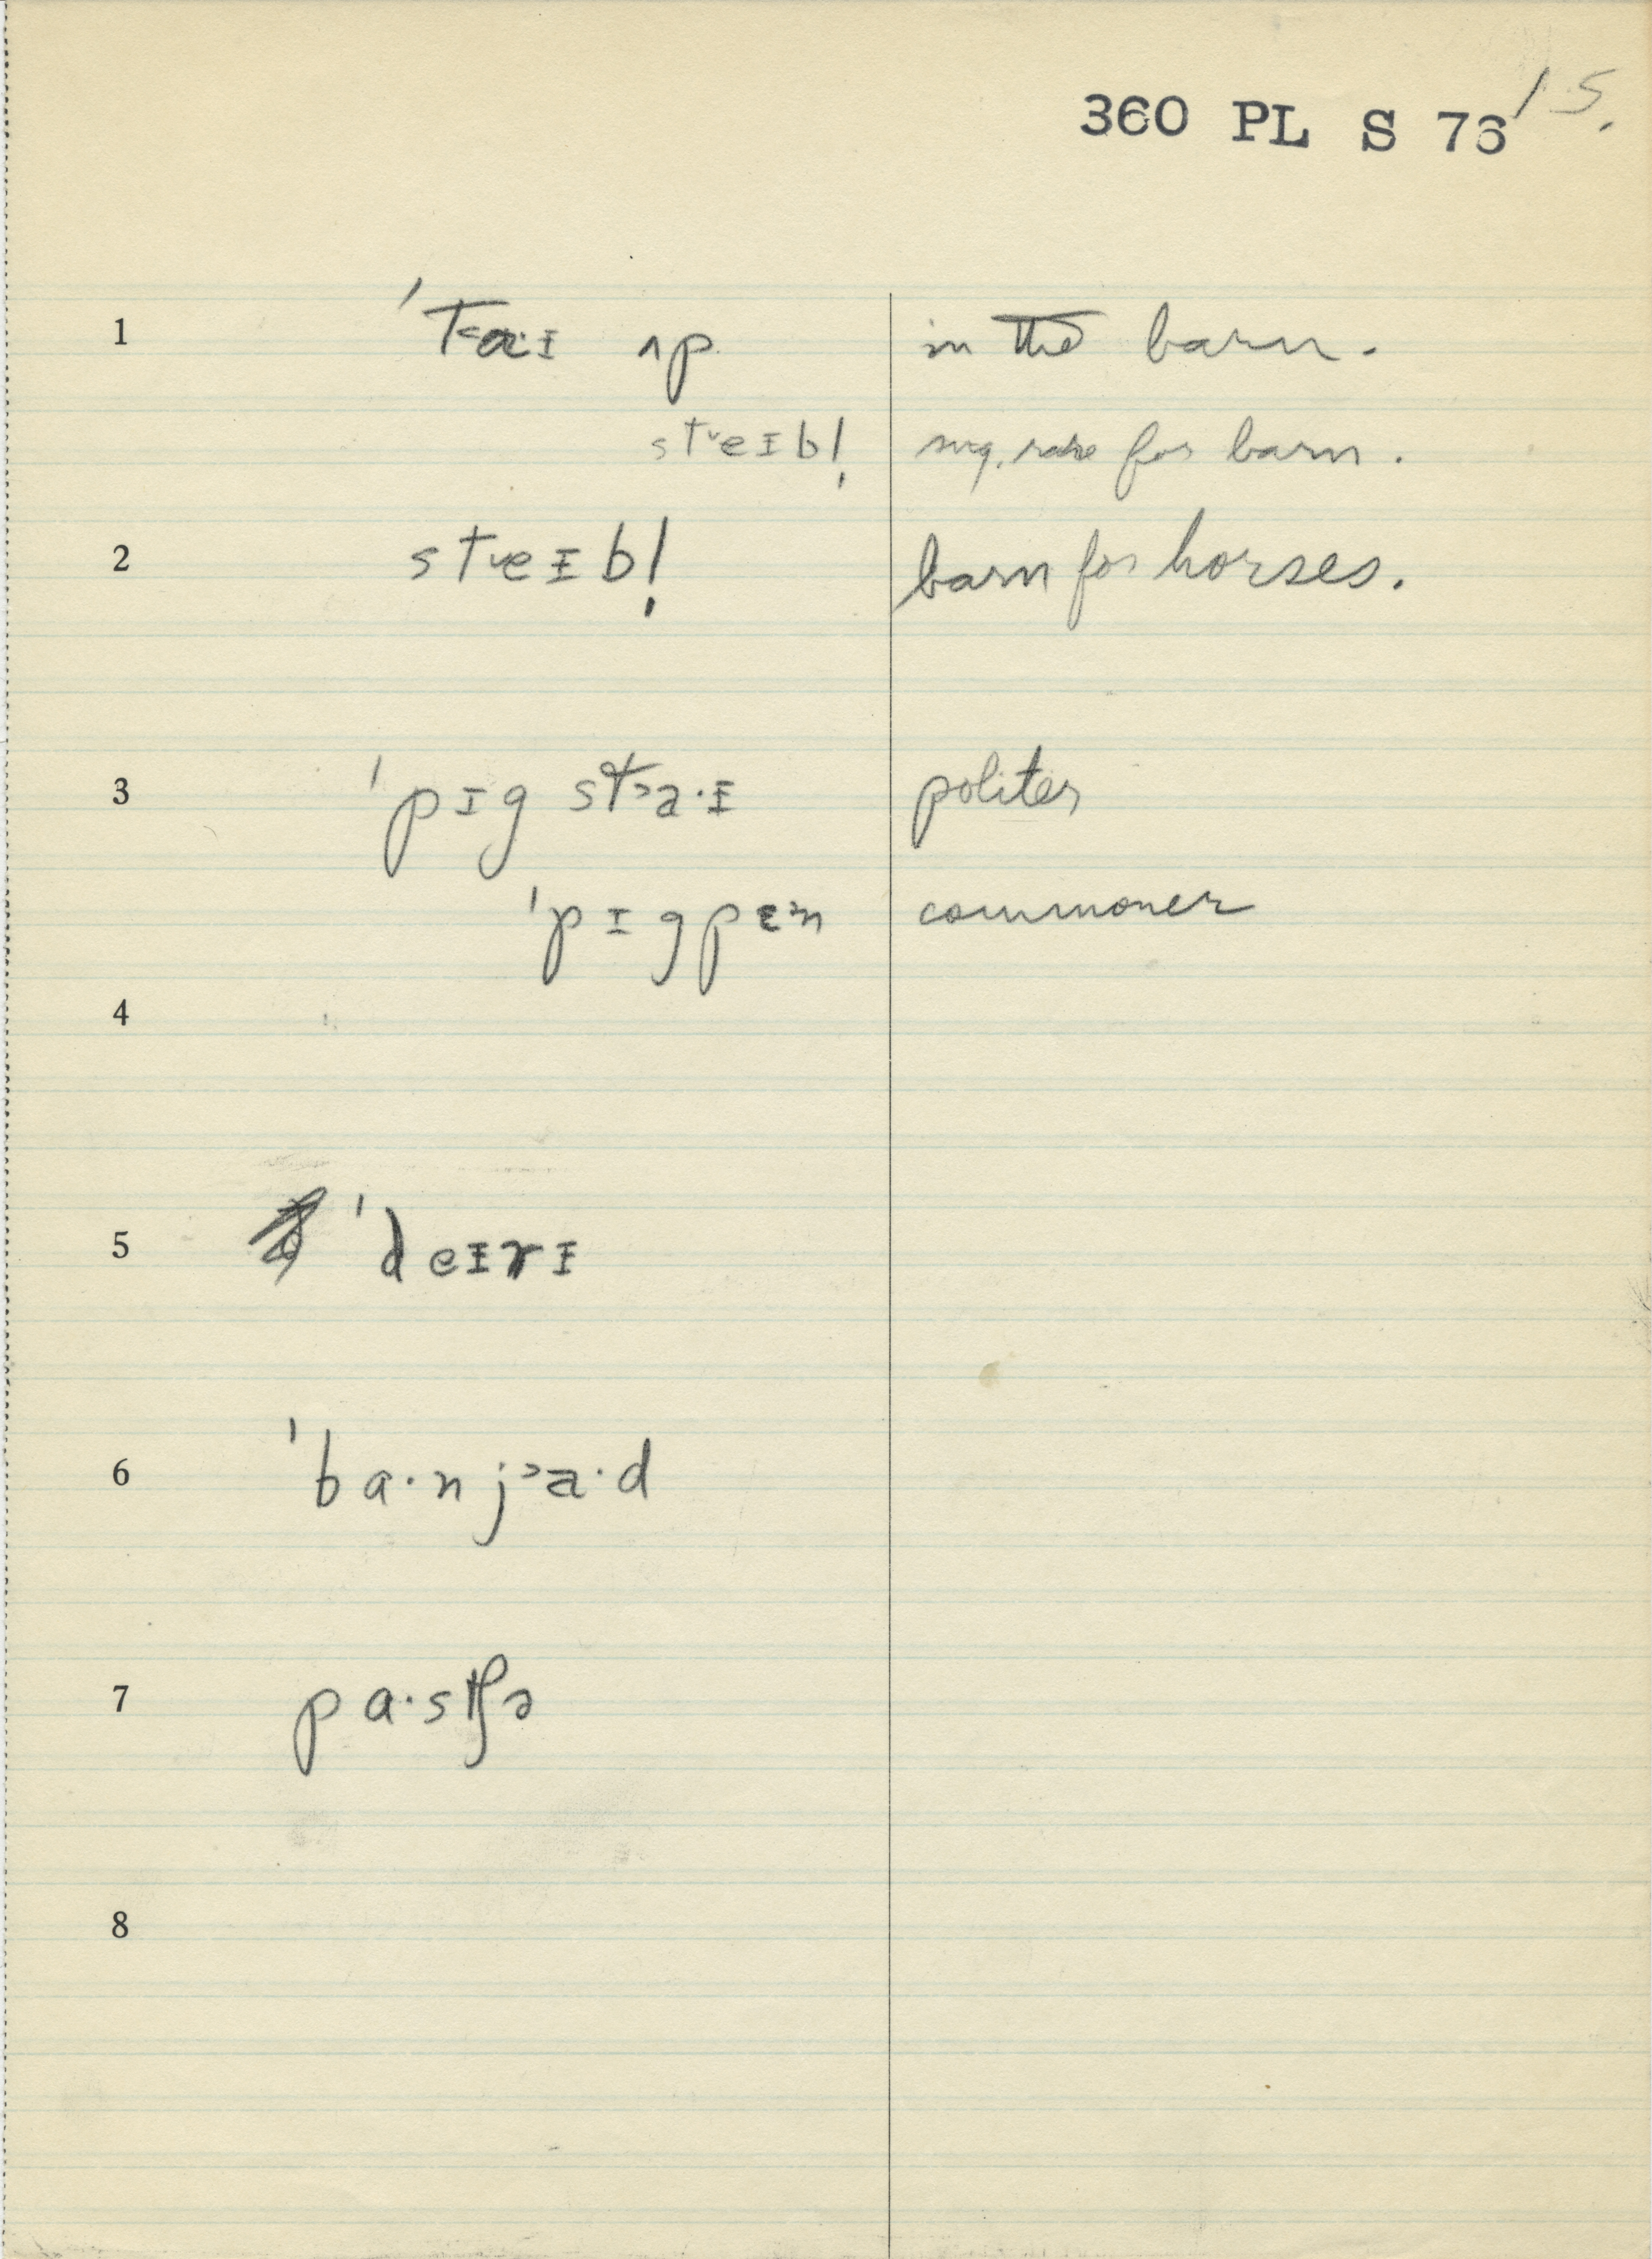 360 PL S 76 15.
1 ˈtaˑɪ ʌp in the barn.
steɪbl̩ sug. rare for barn.
2 steɪbl̩ barn for horses.
3 ˈpɪg staˑɪ politer
ˈpɪgpɛn commoner
4
5 ˈdeɪrɪ
6 ˈbaˑnjaˑd
7 paˑstʃə
8